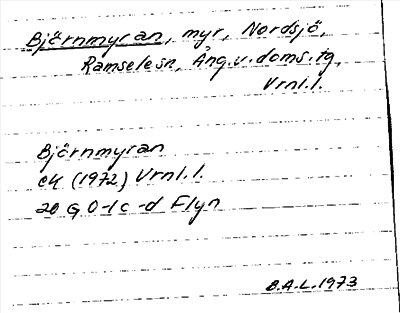 Björnmyran, myr, Nordsjö,
Ramselesn, Ång.v.doms.tg,
Vrnl.l.
Björnmyran
ek (1972) Vrnl.l.
20 G 0-1 c-d Flyn
B.A.L. 1973